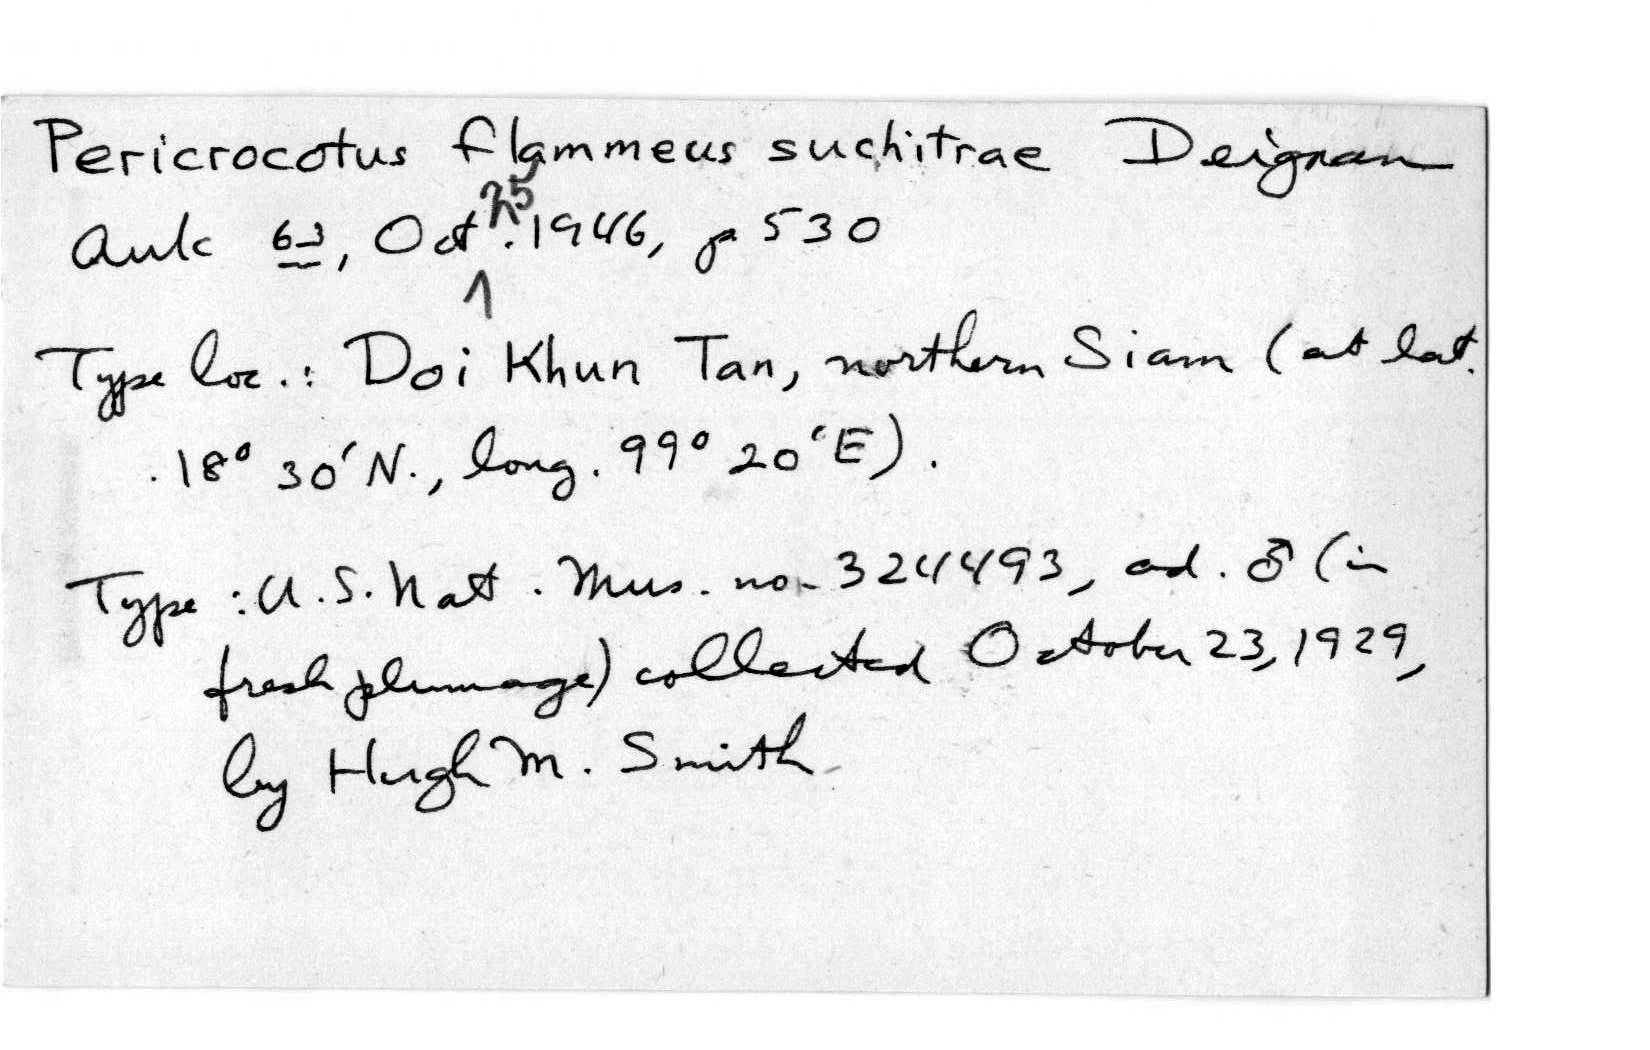 Pericrocotus flammeus suchitrae Deignan
25
Auk 63, Oct. 1946, p 530
Type loc.: Doi Khun Tan, northern Siam (at lat.
18° 30' N., long. 99° 20' E).
Type: U.S. Nat. Mus. no. 324493, ad. ♂ (in
fresh plumage) collected October 23, 1929,
by Hugh M. Smith